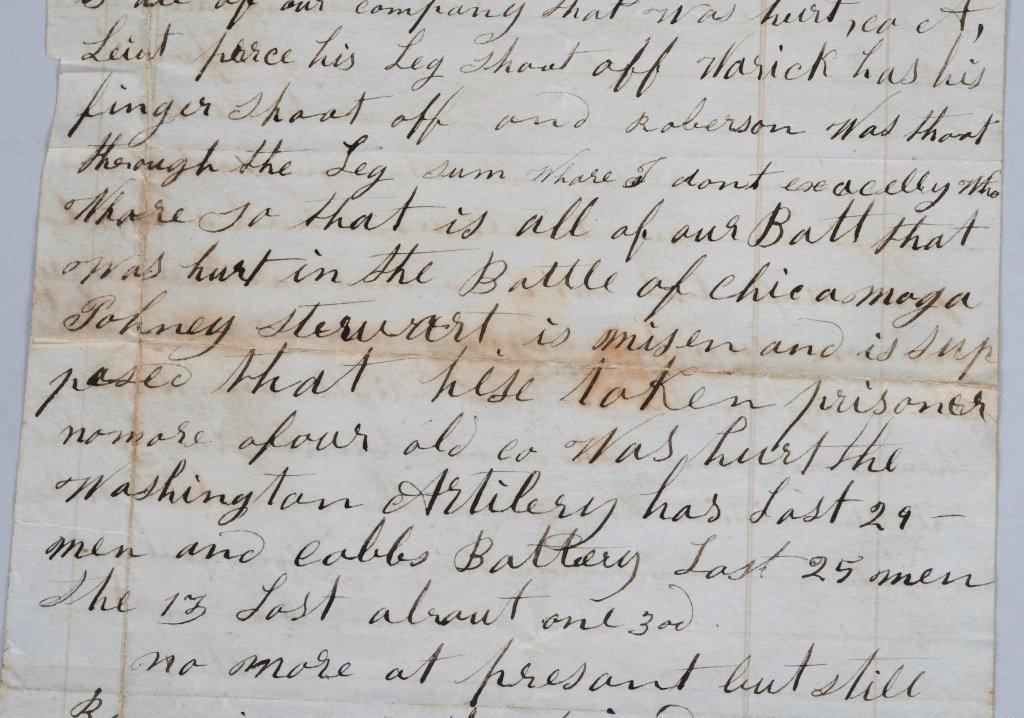 is all of our company that was hurt, co A,
Leiut perce his Leg shoot off Warick has his
finger shoot off and Roberson was shoot
through the Leg sum whare I dont exacelly Who
Whare so that is all of our Batt that
was hurt in the Battle of chicamoga
Johney sterwart is misen and is sup
posed that hise taken prisoner
nomore of our old co Was hurt the
Washington Artilery has Lost 29 -
men and cobbs Battery Last 25 men
the 13 Lost about one 3od.
no more at presant but still